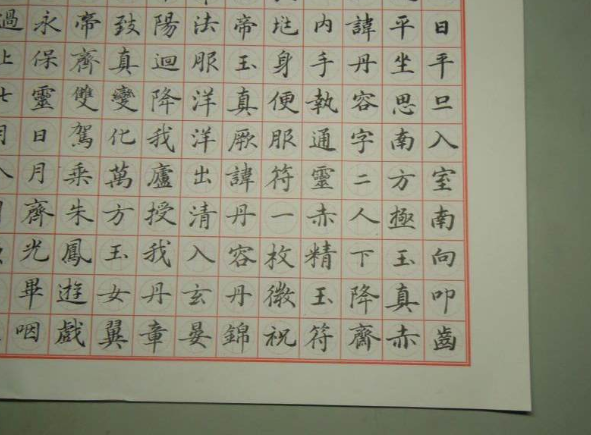 日平旦入室南向叩齒
平坐思南方極玉真赤
諱丹容字二人下降齋
内手執通靈赤精玉符
身便服符一枚微祝
帝玉真厥諱丹容丹錦
法服洋洋出清入玄晏
陽迴降我廬授我丹章
致真變化萬方玉女翼
帝齊雙駕乘朱鳳遊戲
永保靈日月齊光畢咽
過上七月八